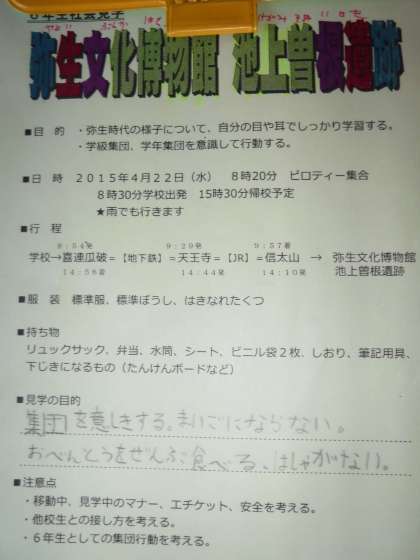 6年生社会見学
弥生文化博物館 池上曽根遺跡
■目 的 ・弥生時代の様子について、自分の目や耳でしっかり学習する。
・学級集団、学年集団を意識して行動する。
■日 時 2015年4月22日(水) 8時20分 ピロティー集合
8時30分学校出発 15時30分帰校予定
★雨でも行きます
■行 程
8:54発 9:29発 9:57着
学校→喜連瓜破=【地下鉄】=天王寺=【JR】=信太山 → 弥生文化博物館
14:56着 14:44発 14:10発 池上曽根遺跡
■服 装 標準服、標準ぼうし、はきなれたくつ
■持ち物
リュックサック、弁当、水筒、シート、ビニル袋2枚、しおり、筆記用具、
下じきになるもの(たんけんボードなど)
■見学の目的
集団を意しきする。まいごにならない。
おべんとうをぜんぶ食べる、はしゃがない。
■注意点
・移動中、見学中のマナー、エチケット、安全を考える。
・他校生との接し方を考える。
・6年生としての集団行動を考える。